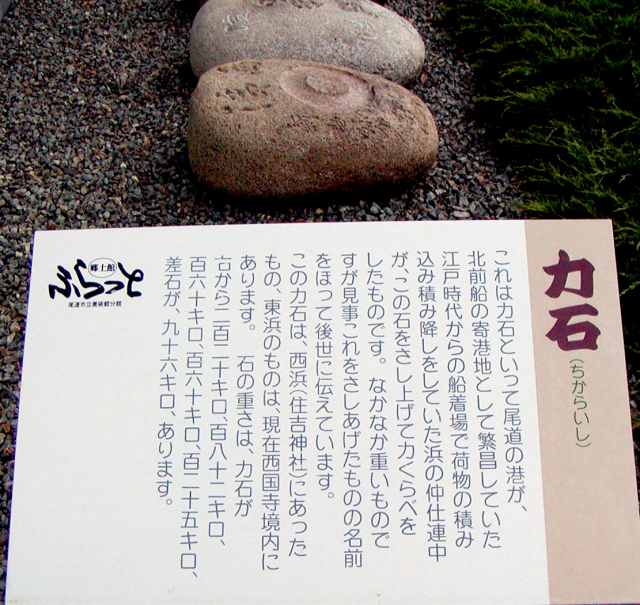 力石
(ちからいし)
これは力石といって尾道の港が、
北前船の寄港地として繁昌していた
江戸時代からの船着場で荷物の積み
込み積み降しをしていた浜の仲仕連中
が、この石をさし上げて力くらべを
したものです。なかなか重いもので
すが見事これをさしあげたものの名前
をほって後世に伝えています。
この力石は、西浜(住吉神社)にあった
もの、東浜のものは、現在西国寺境内に
あります。石の重さは、力石が
右から二百二十キロ、百八十二キロ、
百六十キロ、百六十キロ、百二十五キロ、
差石が、九十六キロ、あります。
郷土館
ふらっと
尾道市立美術館分館